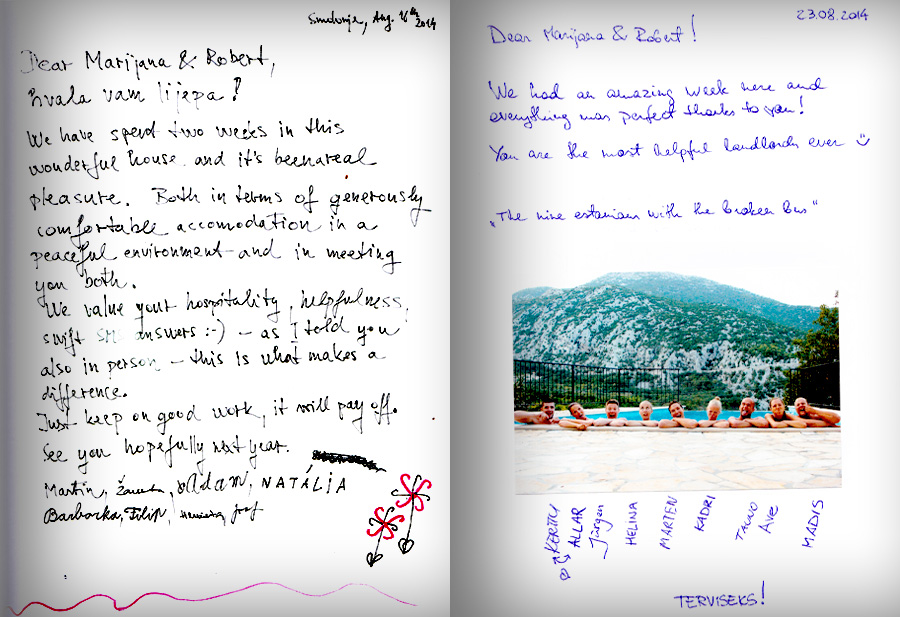 Aug. 16th 2014
Dear Marijana & Robert,
hvala vam lijepa!
We have spend two weeks in this
wonderful house and it's been a real
pleasure. Both in terms of generously
comfortable accomodation in a
peaceful environment and in meeting
you both.
We value your hospitality, helpfulness,
swift answers :-) – as I told you
also in person – this is what makes a
difference.
Just keep on good work, it will pay off.
See you hopefully next year.
Martin, Adam, NATÁLIA
Barborka, Filip,
23.08.2014
Dear Marijana & Robert!
We had an amazing week here and
everything was perfect thanks to you!
You are the most helpful landlords ever
„The nine estonians with the broken bus“
KERTTU
ALLAR
Jürgen
HELINA
MARTEN
KADRI
TAUNO
AVE
MADIS
TERVISEKS!